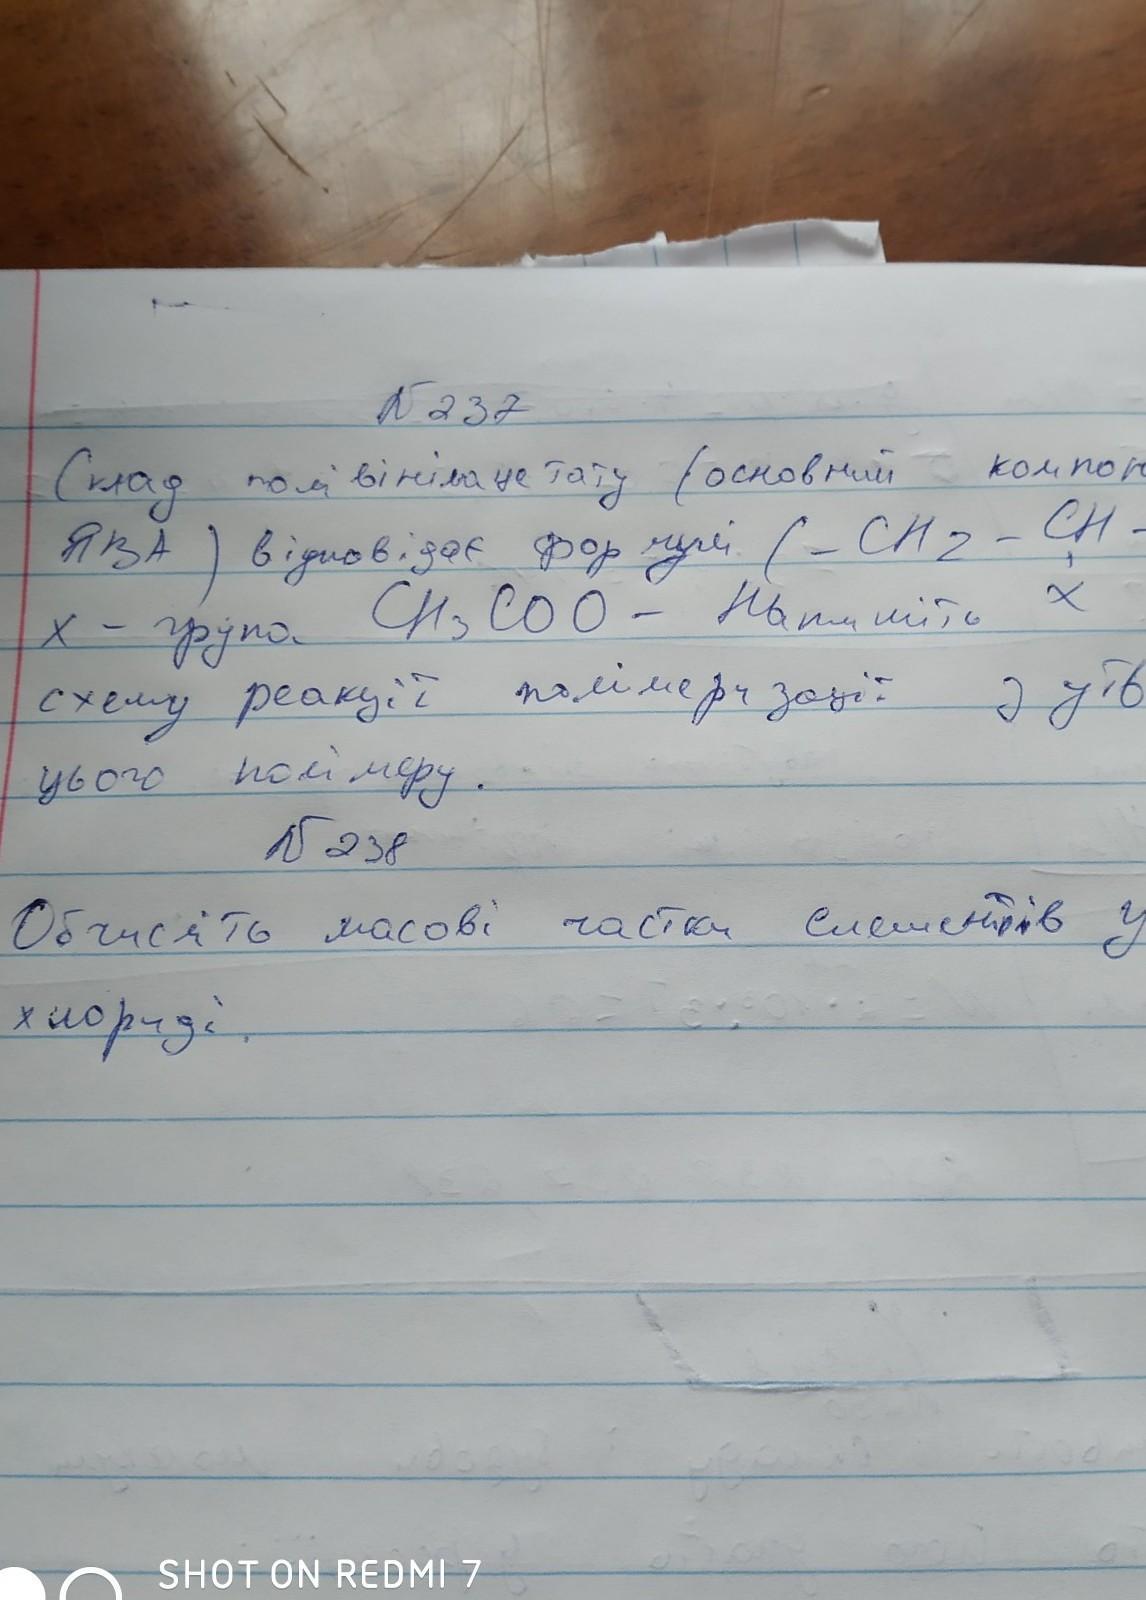 № 237
Склад полівінілацетату (основний компон
ПВА) відповідає формулі (– CH2 – CH –
x – група CH3COO – Напишіть x
схему реакції полімеризації з утв
цього полімеру.
№ 238
Обчисліть масові частки елементів у
хлориді.
SHOT ON REDMI 7